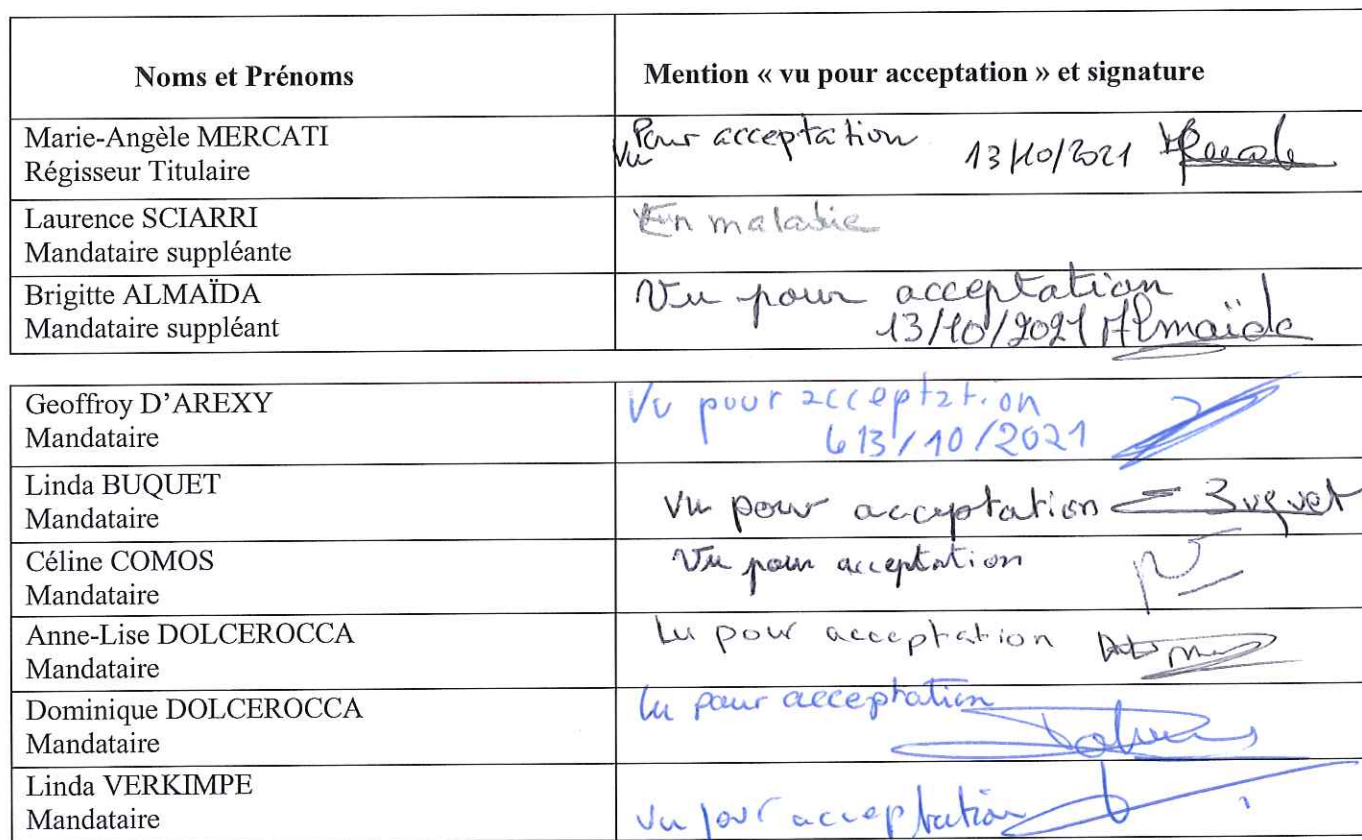 Noms et Prénoms
Mention « vu pour acceptation » et signature
Marie-Angèle MERCATI
Régisseur Titulaire
Vu Pour acceptation 13/10/2021
Laurence SCIARRI
Mandataire suppléante
En maladie
Brigitte ALMAÏDA
Mandataire suppléant
Vu pour acceptation
13/10/2021 Almaïda
Geoffroy D'AREXY
Mandataire
Vu pour acceptation
le 13/10/2021
Linda BUQUET
Mandataire
Vu pour acceptation Buquet
Céline COMOS
Mandataire
Vu pour acceptation
Anne-Lise DOLCEROCCA
Mandataire
Lu pour acceptation
Dominique DOLCEROCCA
Mandataire
lu pour acceptation
Linda VERKIMPE
Mandataire
vu pour acceptation